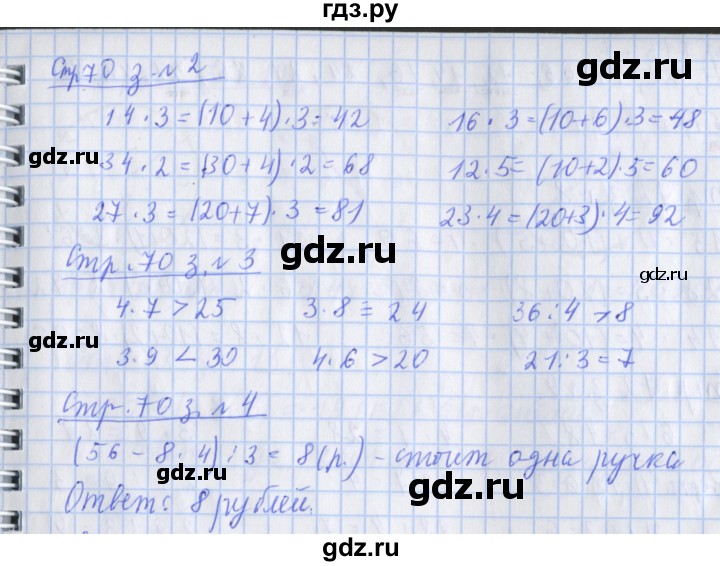 гдз.ру
Стр 70 з. № 2
14 · 3 = (10 + 4) · 3 = 42 16 · 3 = (10+6) · 3 = 48
34 · 2 = (30 + 4) · 2 = 68 12 · 5 = (10+2) · 5 = 60
27 · 3 = (20+7) · 3 = 81 23 · 4 = (20+3) · 4 = 92
Стр. 70 з. № 3
4 · 7 > 25 3 · 8 = 24 36 : 4 > 8
3 · 9 < 30 4 · 6 > 20 21 : 3 = 7
Стр. 70 з. № 4
(56 - 8 · 4) : 3 = 8 (р.) - стоит одна ручка
Ответ: 8 рублей.
gdz.ru
gdz.ru
gdz.ru
gdz.ru
gdz.ru
gdz.ru
gdz.ru
gdz.ru
gdz.ru
gdz.ru